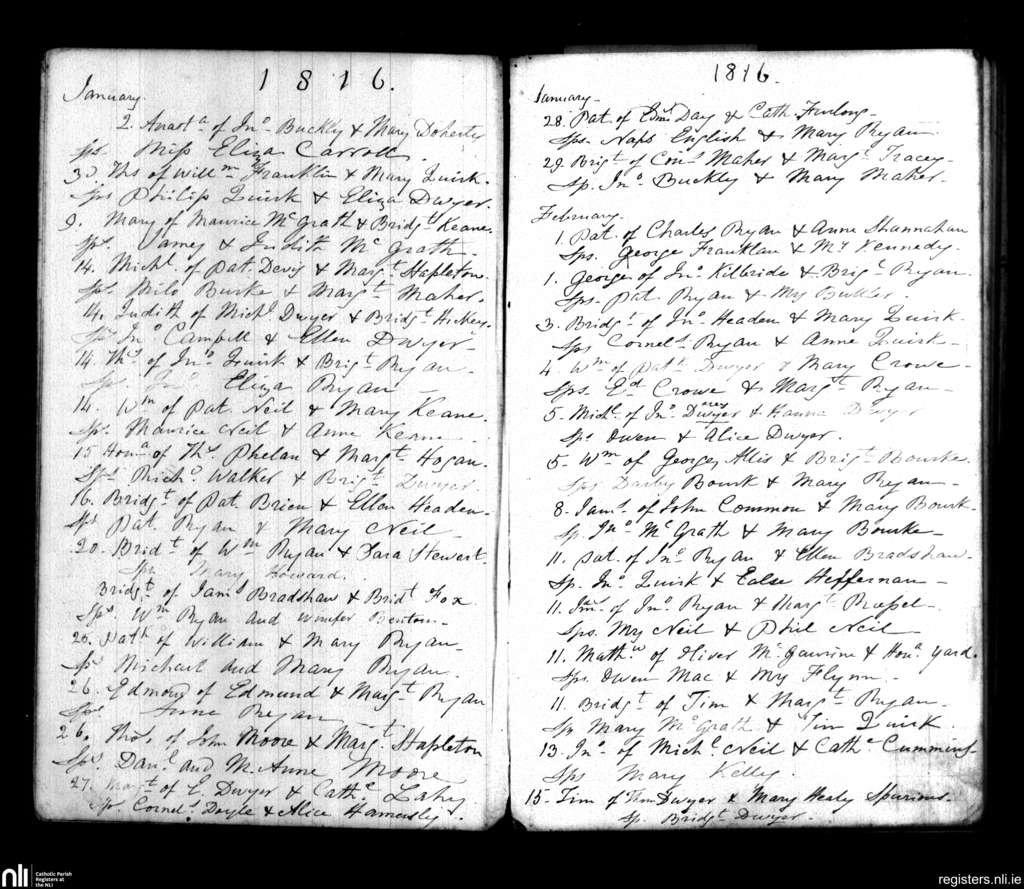 1816.
January.
2. Anast.a of Jn.o Buckly & Mary Doherty
Sps. Miss Eliza Carroll.
3. Ths of Will.m Franklin & Mary Quirk.
Sps Philip Quirk & Eliza Dwyer.
9. Mary of Maurice McGrath & Bridg.t Keane.
Sps. James & Judith McGrath.
14. Mich.l of Pat. Devy & Marg.t Stapleton.
Sps. Milo Burke & Marg.t Maher.
14. Judith of Mich.l Dwyer & Bridg.t Hickey.
Sps Jn.o Campbell & Ellen Dwyer.
14. Ths. of Jn.o Quirk & Brig.t Ryan.
Sp. Eliza Ryan
14. W.m of Pat. Neil & Mary Keane.
Sps. Maurice Neil & Anne Keane.
15 Hon.a of Ths. Phelan & Marg.t Hogan.
Sps. Rich.d Walker & Brig.t Dwyer.
16. Bridg.t of Pat. Brien & Ellen Headen.
Sps Pat. Ryan & Mary Neil
20. Brid.t of W.m Ryan & Sara Stewart
Sp. Mary Howard.
Bridg.t of Jam.s Bradshaw & Brid.t Fox
Sps. W.m Ryan and Winifer Benton.
25. Nath. of William & Mary Ryan
Sps Michael and Mary Ryan.
26. Edmond of Edmund & Marg.t Ryan
Sps. Anne Ryan
26. Thos. of John Moore & Marg.t Stapleton
Sps. Dan.l and M. Anne Moore
27. Marg.t of E. Dwyer & Cath.e Lahy
Sps. Cornel.s Doyle & Alice Hamersly.
1816.
January.
28. Pat. of Edm.d Day & Cath Furlong.
Sps. Naps English & Mary Ryan
29. Brig.t of Con.s Maher & Marg.t Tracey.
Sp. Jn.o Buckley & Mary Maher.
February.
1. Pat. of Charles Ryan & Anne Shannahan
Sps. George Franklan & Mrs Kennedy.
1. George of Jn.o Kilbride & Brig.t Ryan.
Sps. Pat. Ryan & Mrs Butler.
3. Bridg.t of Jn.o Headen & Mary Quirk.
Sps Cornel.s Ryan & Anne Quirk.
4. W.m of Pat.k Dwyer & Mary Crowe.
Sps. Ed. Crowe & Marg.t Ryan
5. Mich.l of Jn.o Dwyer & Hanna Dwyer
Sps Owen & Alice Dwyer.
5. W.m of George Allis & Brig.t Bourke.
Sps Darby Bourk & Mary Ryan
8. Jam.s of John Common & Mary Bourk.
Sp. Jn.o McGrath & Mary Bourke
11. Pat. of Jn.o Ryan & Ellen Bradshaw.
Sp. Jn.o Quirk & Ealse Heffernan
11. of Jn.o Ryan & Marg.t Russel
Sps. Mrs Neil & Phil Neil
11. Math.w of Oliver Mc Gawrine & Hon.a Yard.
Sps. Owen Mac & Mrs Flynn.
11. Bridg.t of Tim & Marg.t Ryan
Sps Mary McGrath & Tim Quirk.
13. Jn.o of Mich.l Neil & Cath.e Cummins
Sps Mary Kelly
15. Tim of Thm Dwyer & Mary Healy Spurious.
Sp. Bridg.t Dwyer.
nli Catholic Parish
Registers at
the NLI
registers.nli.ie